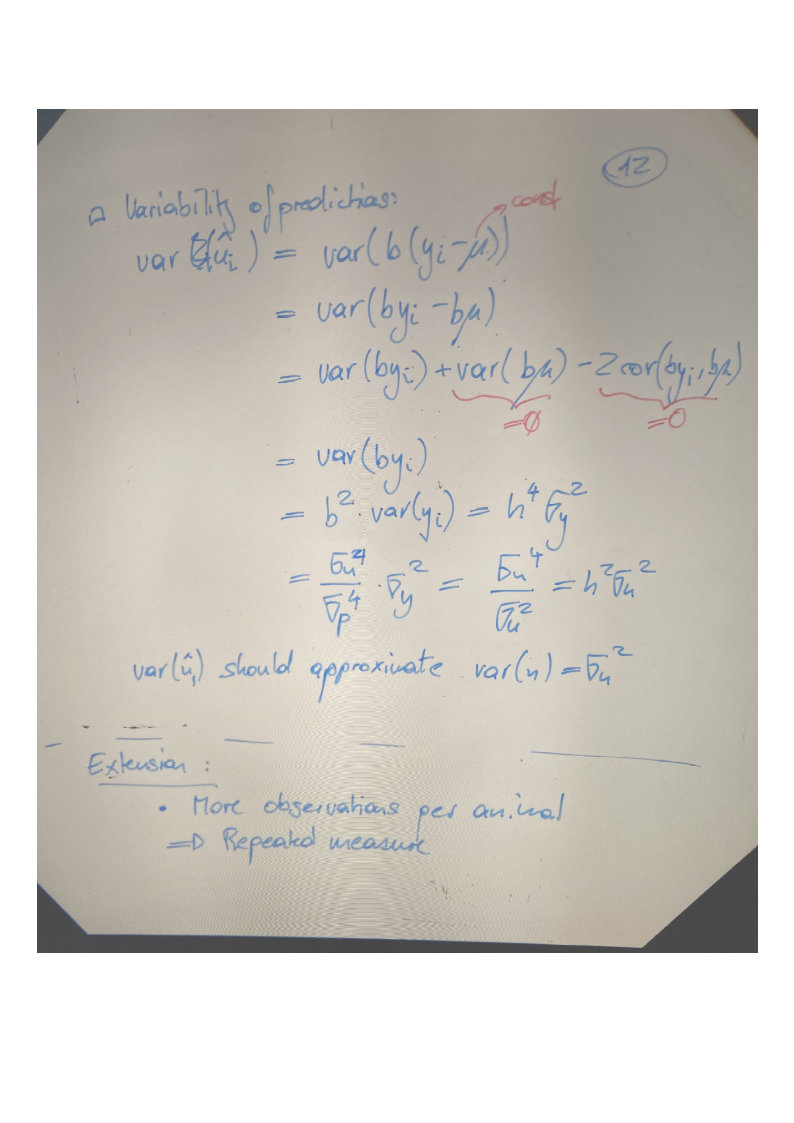 12
□ Variability of predictions:
const
var(û_i) = var(b(y_i - μ))
= var(by_i - bμ)
= var(by_i) + var(bμ) - 2cov(by_i, bμ)
=0 =0
= var(by_i)
= b² · var(y_i) = h⁴ σ_y²
= σ_u⁴ / σ_p⁴ · σ_y² = σ_u⁴ / σ_u² = h² σ_u²
var(û_i) should approximate var(u) = σ_u²
Extension :
• More observations per animal
⇒ Repeated measure